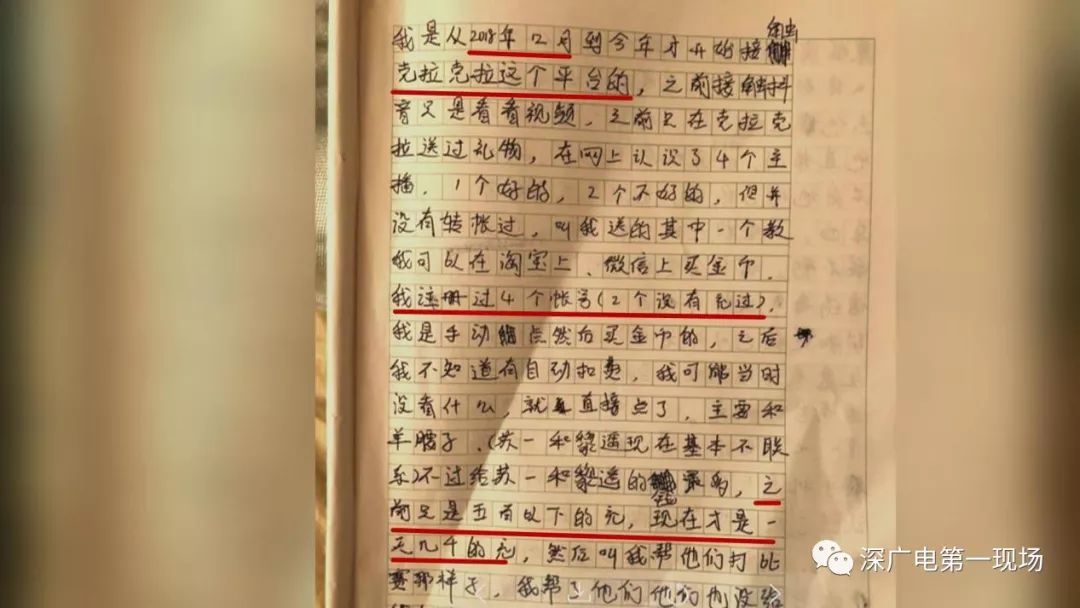 我是从2018年12月到今年才开始接触
克拉克拉这个平台的，之前接触抖
音只是看看视频，之前只在克拉克
拉送过礼物，在网上认识了4个主
播，1个好的，2个不好的，但并
没有转帐过，叫我送的其中一个教
我可以在淘宝上、微信上买金币，
我注册过4个帐号(2个没有充过)，
我是手动点然后买金币的，之后
我不知道有自动扣费，我可能当时
没看什么，就直接点了，主要和
羊腰子、(苏一和黎遥现在基本不联
系)不过给苏一和黎遥的钱最多，之
前只是五百以下的充，现在才是一
天几千的充，然后叫我帮他们打比
赛那样子，我帮了他们他们也没给
深广电第一现场